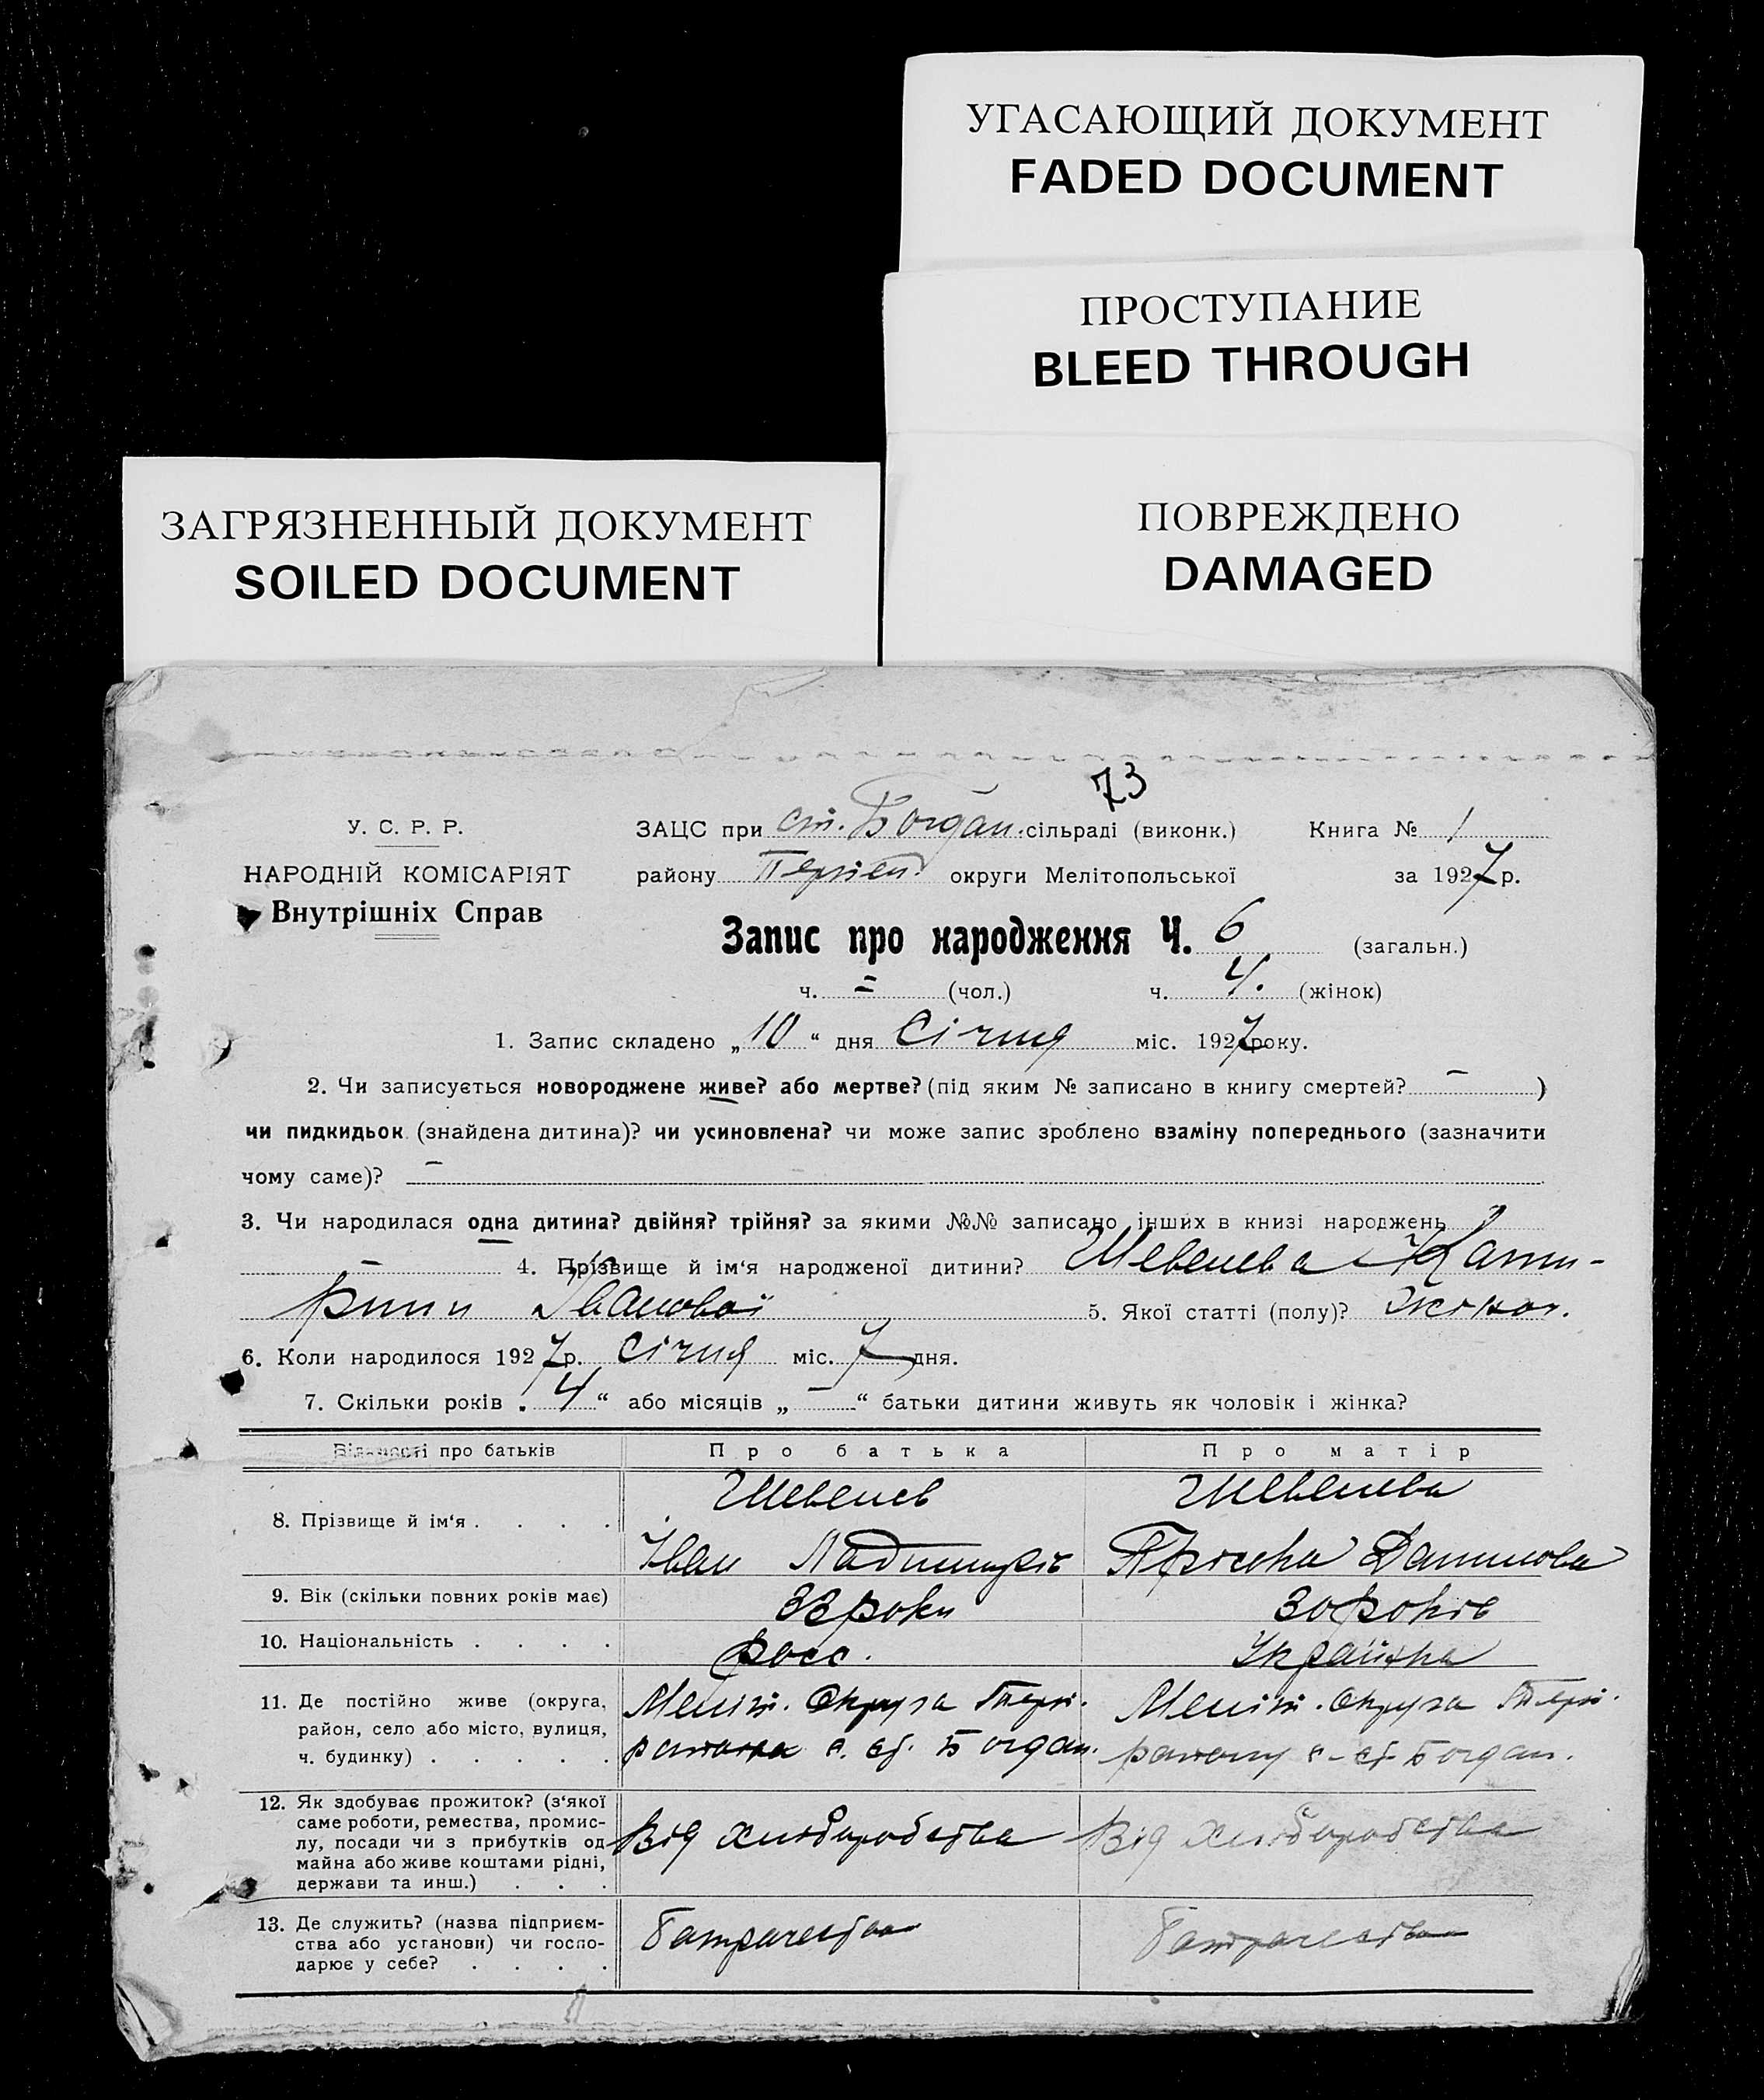 УГАСАЮЩИЙ ДОКУМЕНТ
FADED DOCUMENT
ПРОСТУПАНИЕ
BLEED THROUGH
ЗАГРЯЗНЕННЫЙ ДОКУМЕНТ
SOILED DOCUMENT
ПОВРЕЖДЕНО
DAMAGED
73
У. С. Р. Р.
НАРОДНІЙ КОМІСАРІЯТ
Внутрішніх Справ
ЗАЦС при ст. Богдан. сільраді (виконк.) Книга № 1
району округи Мелітопольської за 1927 р.
Запис про народження Ч. 6 (загальн.)
ч. = (чол.) ч. 4. (жінок)
1. Запис складено „10“ дня Січня міс. 1927 року.
2. Чи записується новороджене живе? або мертве? (під яким № записано в книгу смертей? – )
чи пидкидьок (знайдена дитина)? чи усиновлена? чи може запис зроблено взаміну попереднього (зазначити
чому саме)? –
3. Чи народилася одна дитина? двійня? трійня? за якими №№ записано інших в книзі народжень
– 4. Прізвище й ім‘я народженої дитини? Шевелева Кати-
рини Іванової 5. Якої статті (полу)?
6. Коли народилося 1927 р. Січня міс. 7 дня.
7. Скільки років „4“ або місяців „–“ батьки дитини живуть як чоловік і жінка?
Відомості про батьків Про батька Про матір
8. Прізвище й ім‘я . . . . Шевелев Шевелева
Іван Прісока Данилова
9. Вік (скільки повних років має) 33 роки 30 років
10. Національність . . . . Росс. Українка
11. Де постійно живе (округа, район, село або місто, вулиця, ч. будинку) . . . . . Меліт. Округа Меліт. Округа
района с. ст. Богдан. району с. ст. Богдан.
12. Як здобуває прожиток? (з‘якої саме роботи, ремества, промислу, посади чи з прибутків од майна або живе коштами рідні, держави та инш.) . . . Від хліборобства Від хліборобства
13. Де служить? (назва підприємства або установи) чи господарює у себе? . . . . Батрачество Батрачество